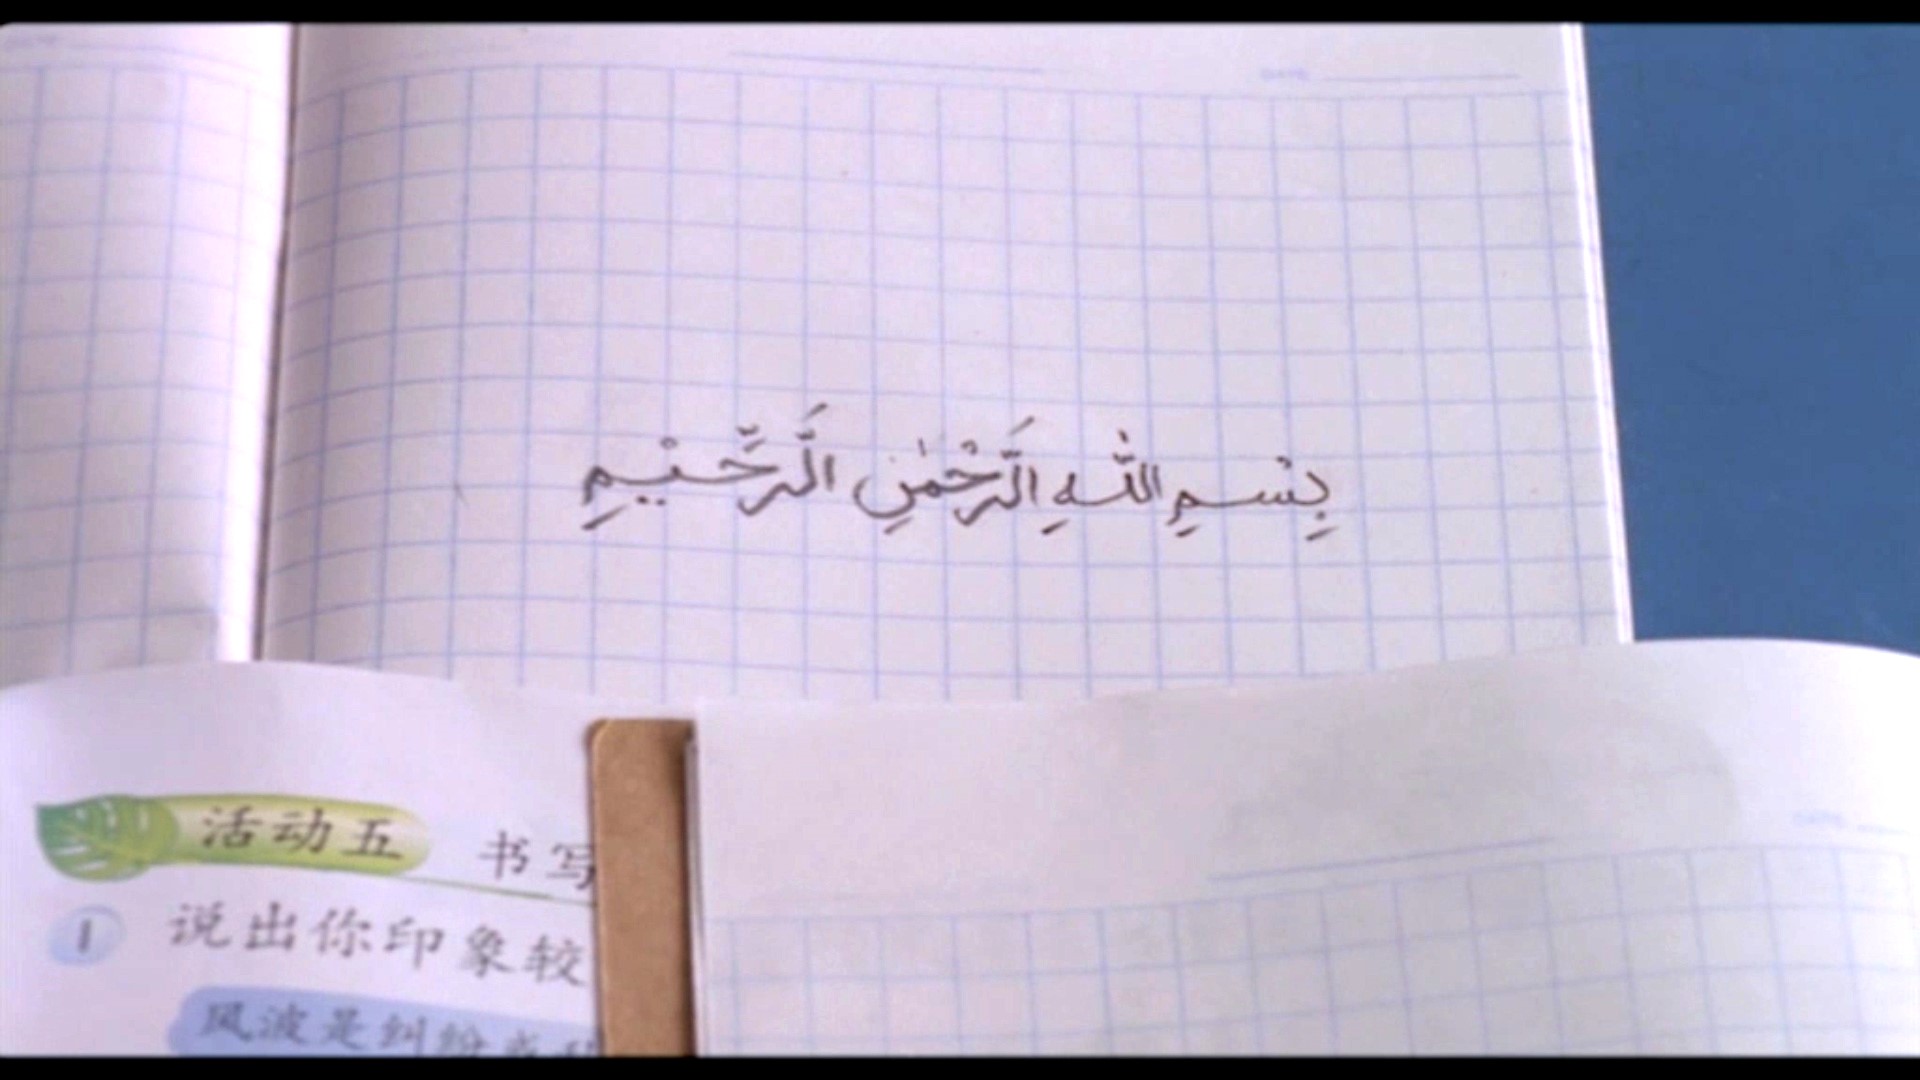 بِسْمِ اللّٰهِ الَرَّحْمٰنِ الَرَّحِيْمِ
活动五 书写
1 说出你印象较
风波是纠纷